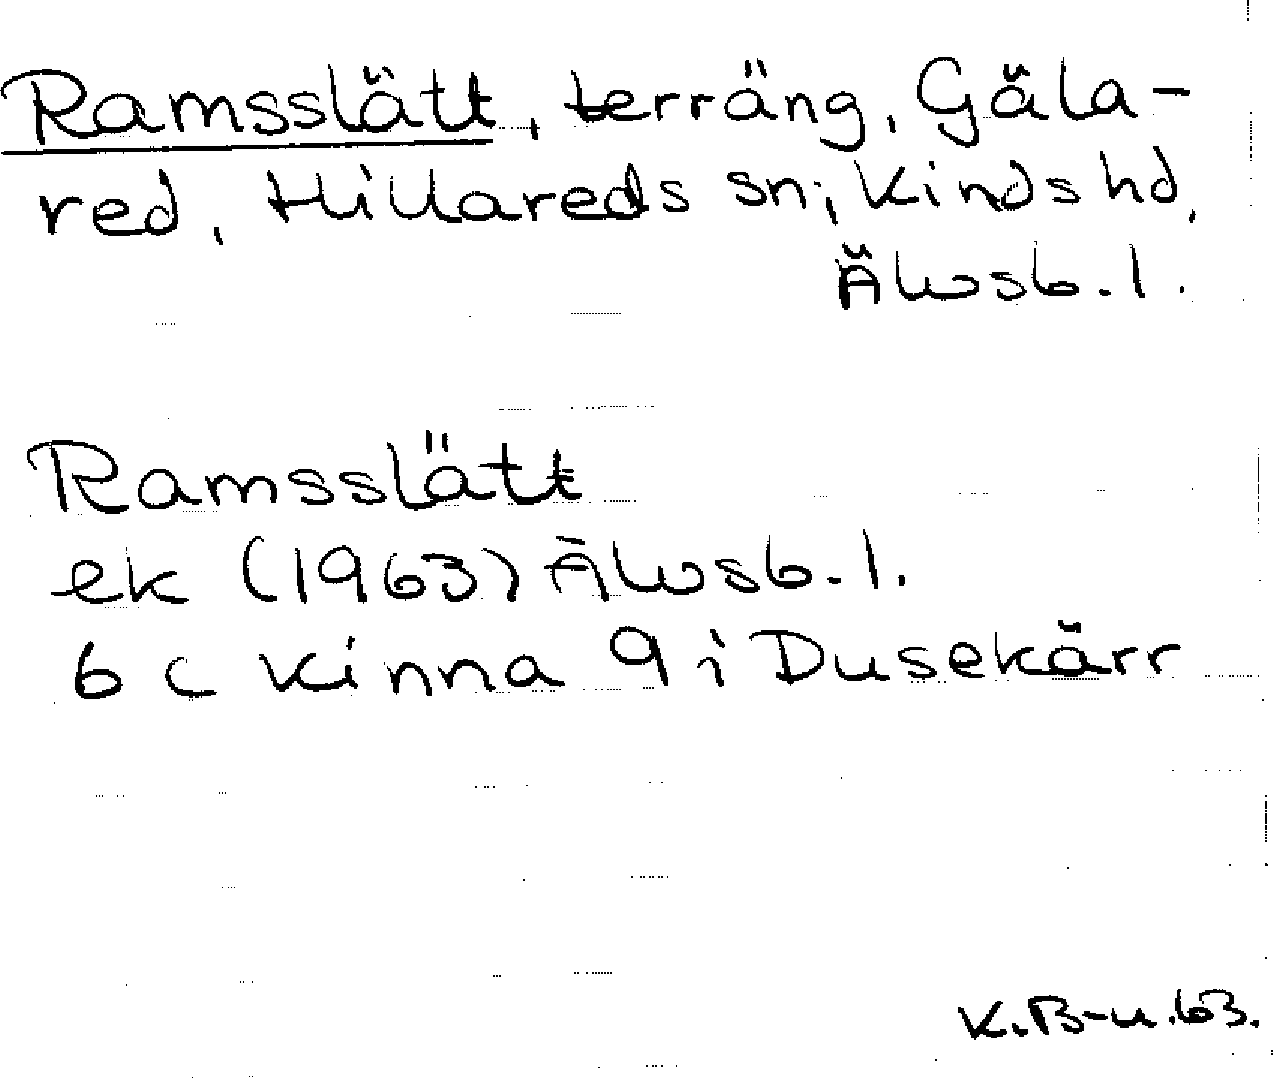 Ramsslätt, terräng, Gäla-
red, Hillareds sn, Kinds hd,
Älvsb. l.
Ramsslätt
ek (1963) Älvsb. l.
6 c Kinna 9 i Dusekärr
K. B-n. 63.